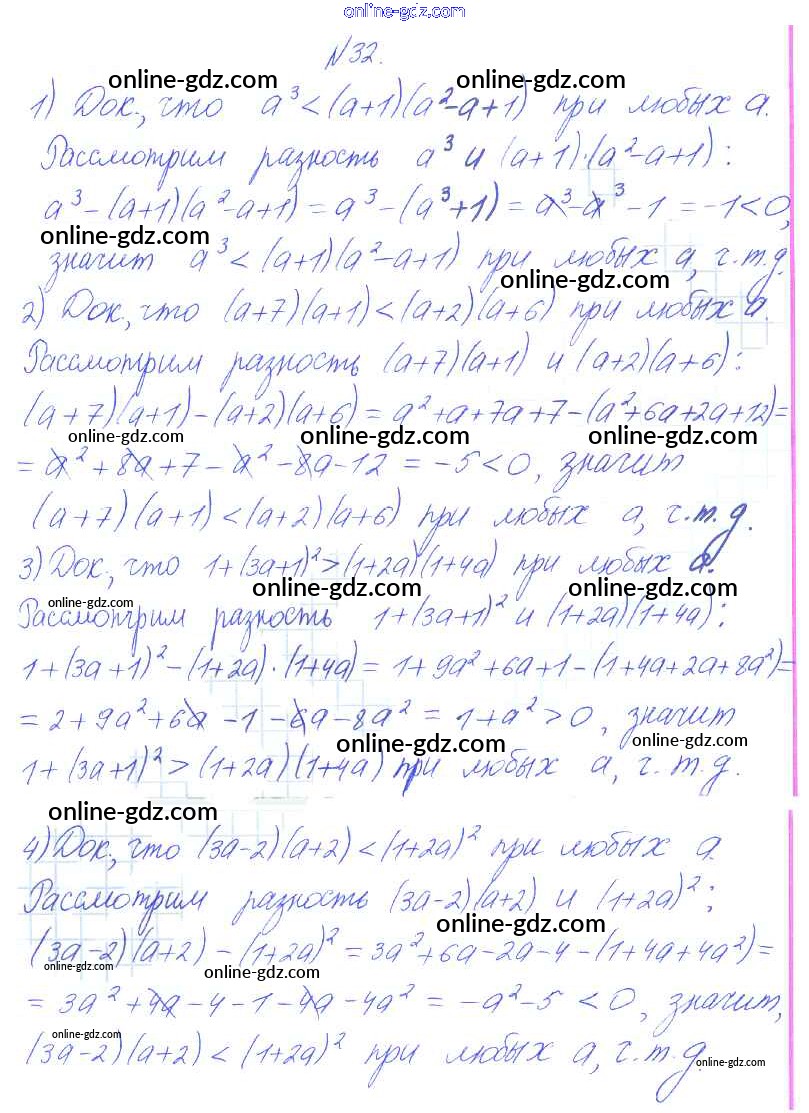 online-gdz.com
№32.
online-gdz.com online-gdz.com
1) Док, что a³ < (a+1)(a²-a+1) при любых a.
Рассмотрим разность a³ и (a+1)·(a²-a+1):
a³-(a+1)(a²-a+1) = a³-(a³+1) = a³-a³-1 = -1<0,
online-gdz.com
значит a³ < (a+1)(a²-a+1) при любых a, ч.т.д.
online-gdz.com
2) Док, что (a+7)(a+1)<(a+2)(a+6) при любых a.
online-gdz.com
Рассмотрим разность (a+7)(a+1) и (a+2)(a+6):
(a+7)(a+1)-(a+2)(a+6) = a²+a+7a+7-(a²+6a+2a+12)=
online-gdz.com online-gdz.com online-gdz.com
= a²+8a+7-a²-8a-12 = -5<0, значит
(a+7)(a+1)<(a+2)(a+6) при любых a, ч.т.д.
3) Док, что 1+(3a+1)²>(1+2a)(1+4a) при любых a.
online-gdz.com online-gdz.com online-gdz.com
Рассмотрим разность 1+(3a+1)² и (1+2a)(1+4a):
1+(3a+1)²-(1+2a)·(1+4a) = 1+9a²+6a+1-(1+4a+2a+8a²)=
= 2+9a²+6a-1-6a-8a² = 1+a²>0, значит
online-gdz.com online-gdz.com
1+(3a+1)²>(1+2a)(1+4a) при любых a, ч.т.д.
online-gdz.com
4) Док, что (3a-2)(a+2)<(1+2a)² при любых a
Рассмотрим разность (3a-2)(a+2) и (1+2a)²;
online-gdz.com
(3a-2)(a+2)-(1+2a)² = 3a²+6a-2a-4-(1+4a+4a²)=
online-gdz.com online-gdz.com
= 3a²+4a-4-1-4a-4a² = -a²-5<0, значит,
online-gdz.com
(3a-2)(a+2)<(1+2a)² при любых a, ч.т.д.
online-gdz.com